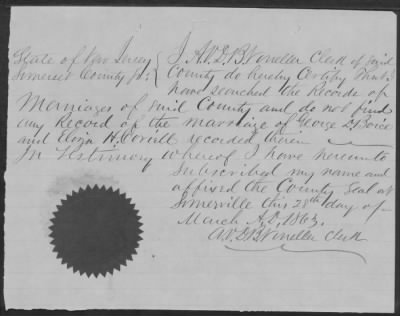 State of New Jersey
Somerset County ss:
I A.V.D.B. Vroeller Clerk of said
County do hereby Certify that I
have searched the Records of
Marriages of said County and do not find
any Record of the marriage of George D. Boice
and Eliza H. recorded therein
In Testimony whereof I have hereunto
Subscribed my name and
affixed the County Seal at
Somerville this 28th day of
March A.D. 1863.
A.V.D.B. Vroeller Clerk